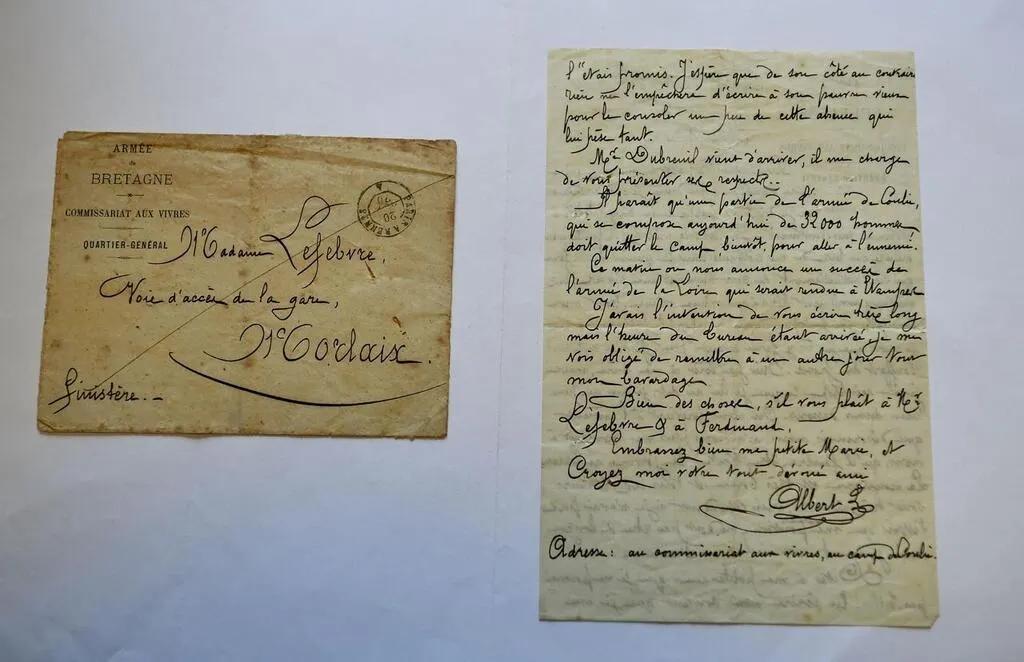 ARMÉE
de
BRETAGNE
COMMISSARIAT AUX VIVRES
QUARTIER-GÉNÉRAL
Madame Lefebvre,
Voie d'accès de la gare,
Morlaix.
Finistère.-
PARIS A RENNES
20
70
A
l'etais promis. J'espère que de son côté au contraire
rien ne l'empêchera d'écrire à son pauvre vieux
pour le consoler un peu de cette absence qui
lui pèse tant.
Mr. Dubreuil vient d'arriver, il me charge
de vous présenter ses respects..
Il paraît qu'une partie de l'armée de Conlie,
qui se compose aujourd'hui de 32000 hommes,
doit quitter le camp, bientôt, pour aller à l'ennemi.
Ce matin on nous annonce un succès de
l'armée de la Loire qui serait rendue à Etampes
J'avais l'intention de vous écrire très long
mais l'heure du bureau étant arrivée, je me
vois obligé de remettre à un autre jour tout
mon bavardage
Bien des choses, s'il vous plaît à Mr.
Lefebvre & à Ferdinand.
Embrassez bien ma petite Marie, et
Croyez moi votre tout dévoué ami
Albert L
Adresse: au commissariat aux vivres, au camp de Conlie.